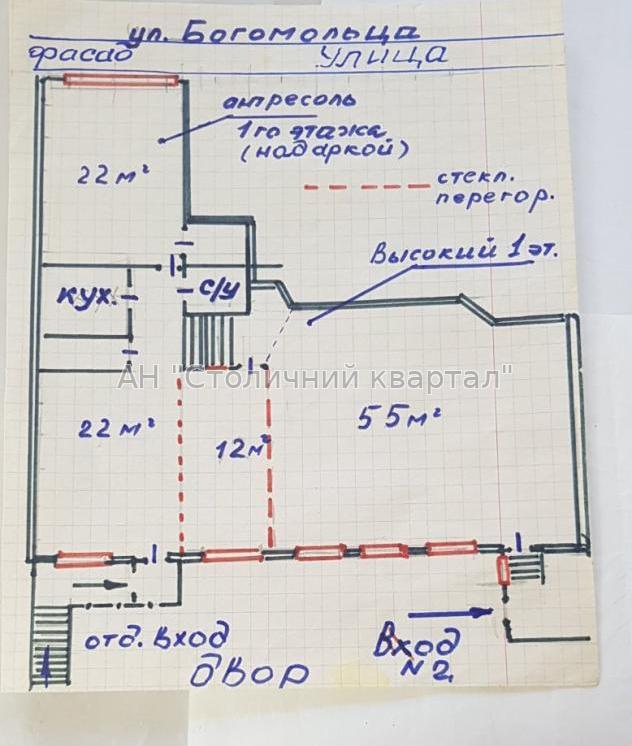 ул. Богомольца
фасад улица
антресоль
1го этажа
(над аркой)
22 м²
стекл.
перегор.
Высокий 1 эт.
кух. с/у
АН "Столичний квартал"
22 м² 12 м² 55 м²
отд. Вход Вход
N 2
двор